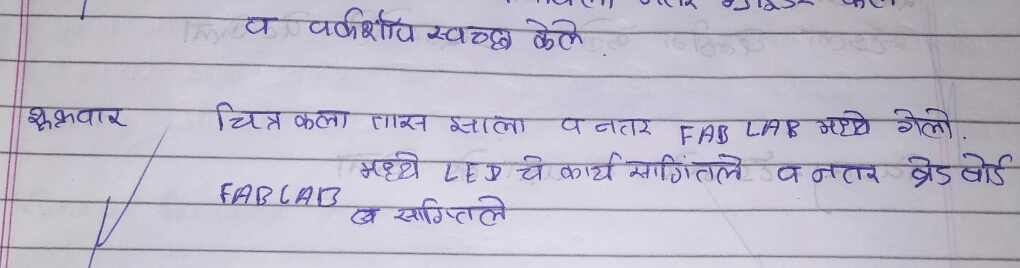 व वर्कशॉप स्वच्छ केले.
शुक्रवार चित्रकला तास झाला व नतर FAB LAB मध्ये गेलो.
FABLAB मध्ये LED चे कार्य सागितले व नतर ब्रेड बोर्ड
व सागितले